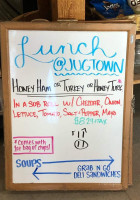 Lunch
@JUGTOWN
HONEY HAM OR TURKEY OR HONEY TURK
IN A SUB ROLL W/ CHEESE, ONION,
LETTUCE, TOMATO, SALT + PEPPER, MAYO
$8.29 + TAX
* COMES WITH
bag of chips!
SOUPS
GRAB N GO
DELI SANDWICHES